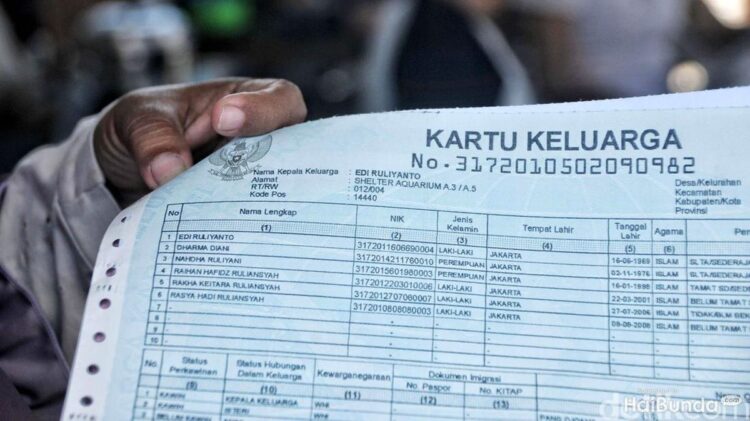 KARTU KELUARGA
No. 3172010502090982
Nama Kepala Keluarga : EDI RULIYANTO
Alamat : SHELTER AQUARIUM A.3 / A.5
RT/RW : 012/004
Kode Pos : 14440
Desa/Kelurahan
Kecamatan
Kabupaten/Kota
Provinsi
No Nama Lengkap NIK Jenis Kelamin Tempat Lahir Tanggal Lahir Agama
(1) (2) (3) (4) (5) (6)
1 EDI RULIYANTO 3172011606690004 LAKI-LAKI JAKARTA 16-06-1969 ISLAM SLTA/SEDERAJA
2 DHARMA DIANI 3172014211760010 PEREMPUAN JAKARTA 02-11-1976 ISLAM SLTA/SEDERAJ
3 NAHDHA RULIYANI 3172015601980003 PEREMPUAN JAKARTA 16-01-1998 ISLAM TAMAT SD/SEDER
4 RAIHAN HAFIDZ RULIANSYAH 3172012203010006 LAKI-LAKI JAKARTA 22-03-2001 ISLAM BELUM TAMAT
5 RAKHA KEITARA RULIANSYAH 3172012707060007 LAKI-LAKI JAKARTA 27-07-2006 ISLAM TIDAK/BLM
6 RASYA HADI RULIANSYAH 3172010808080003 LAKI-LAKI JAKARTA 08-08-2008 ISLAM BELUM TAMAT
7
8
9
10
No Status Perkawinan Status Hubungan Dalam Keluarga Kewarganegaraan Dokumen Imigrasi
No. Paspor No. KITAP
(9) (10) (11) (12) (13)
1 KAWIN KEPALA KELUARGA WNI
KAWIN ISTERI WNI
detikcom
HaiBunda.com